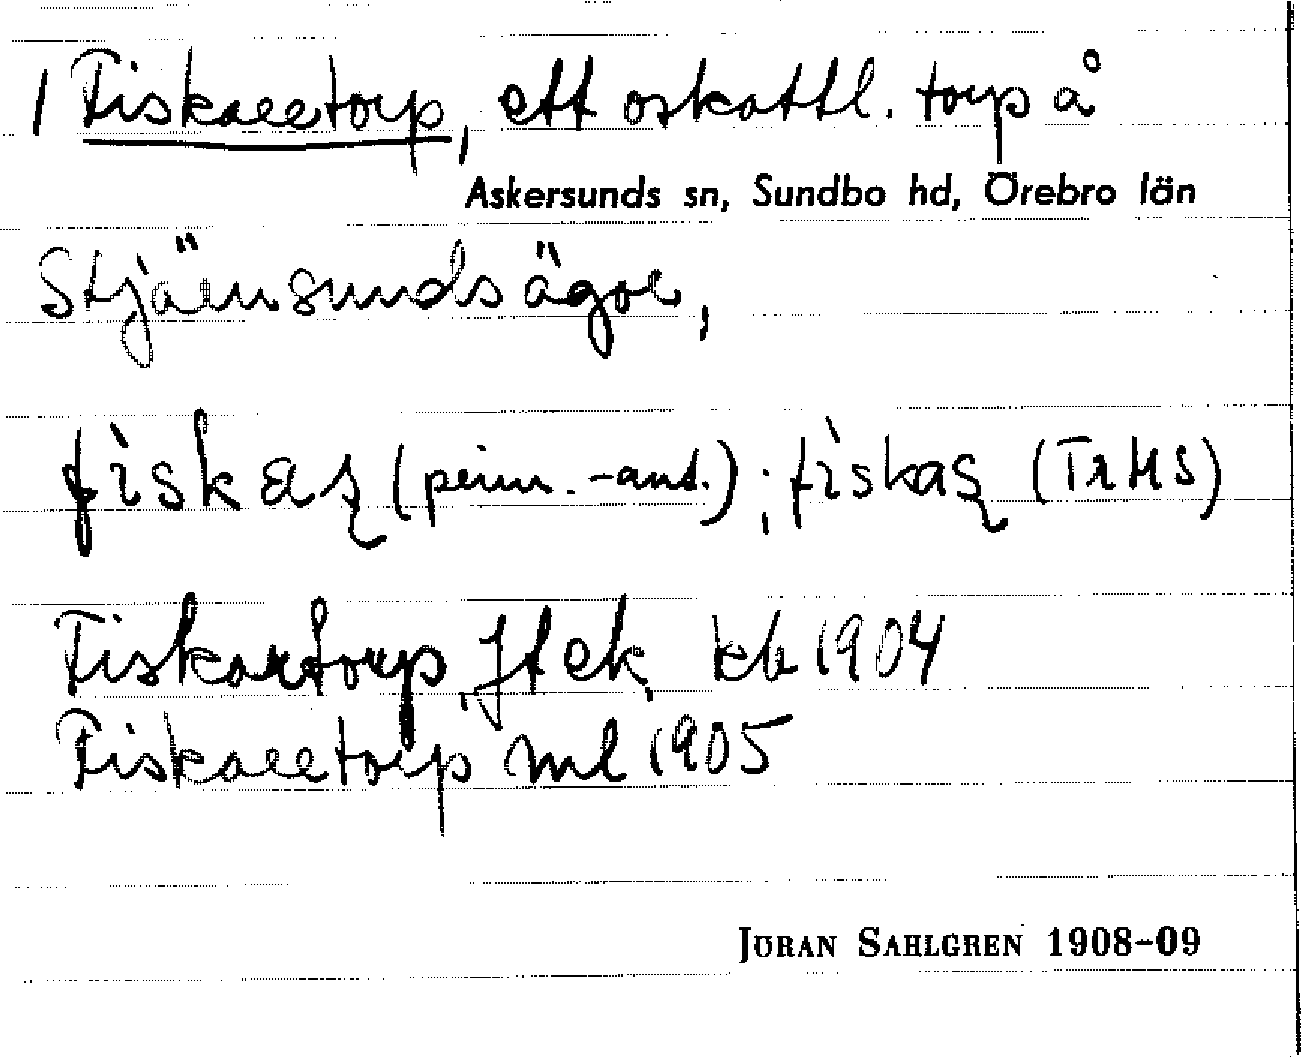 1 Fiskaretorp, ett oskattl. torp å
Askersunds sn, Sundbo hd, Örebro län
Stjärnsunds ägor,
fiskaʂ (perm. -and.); fiskaʂ (TrHS)
Fiskartorp, Jfek, kb 1904
Fiskaretorp ml 1905
JÖRAN SAHLGREN 1908-09